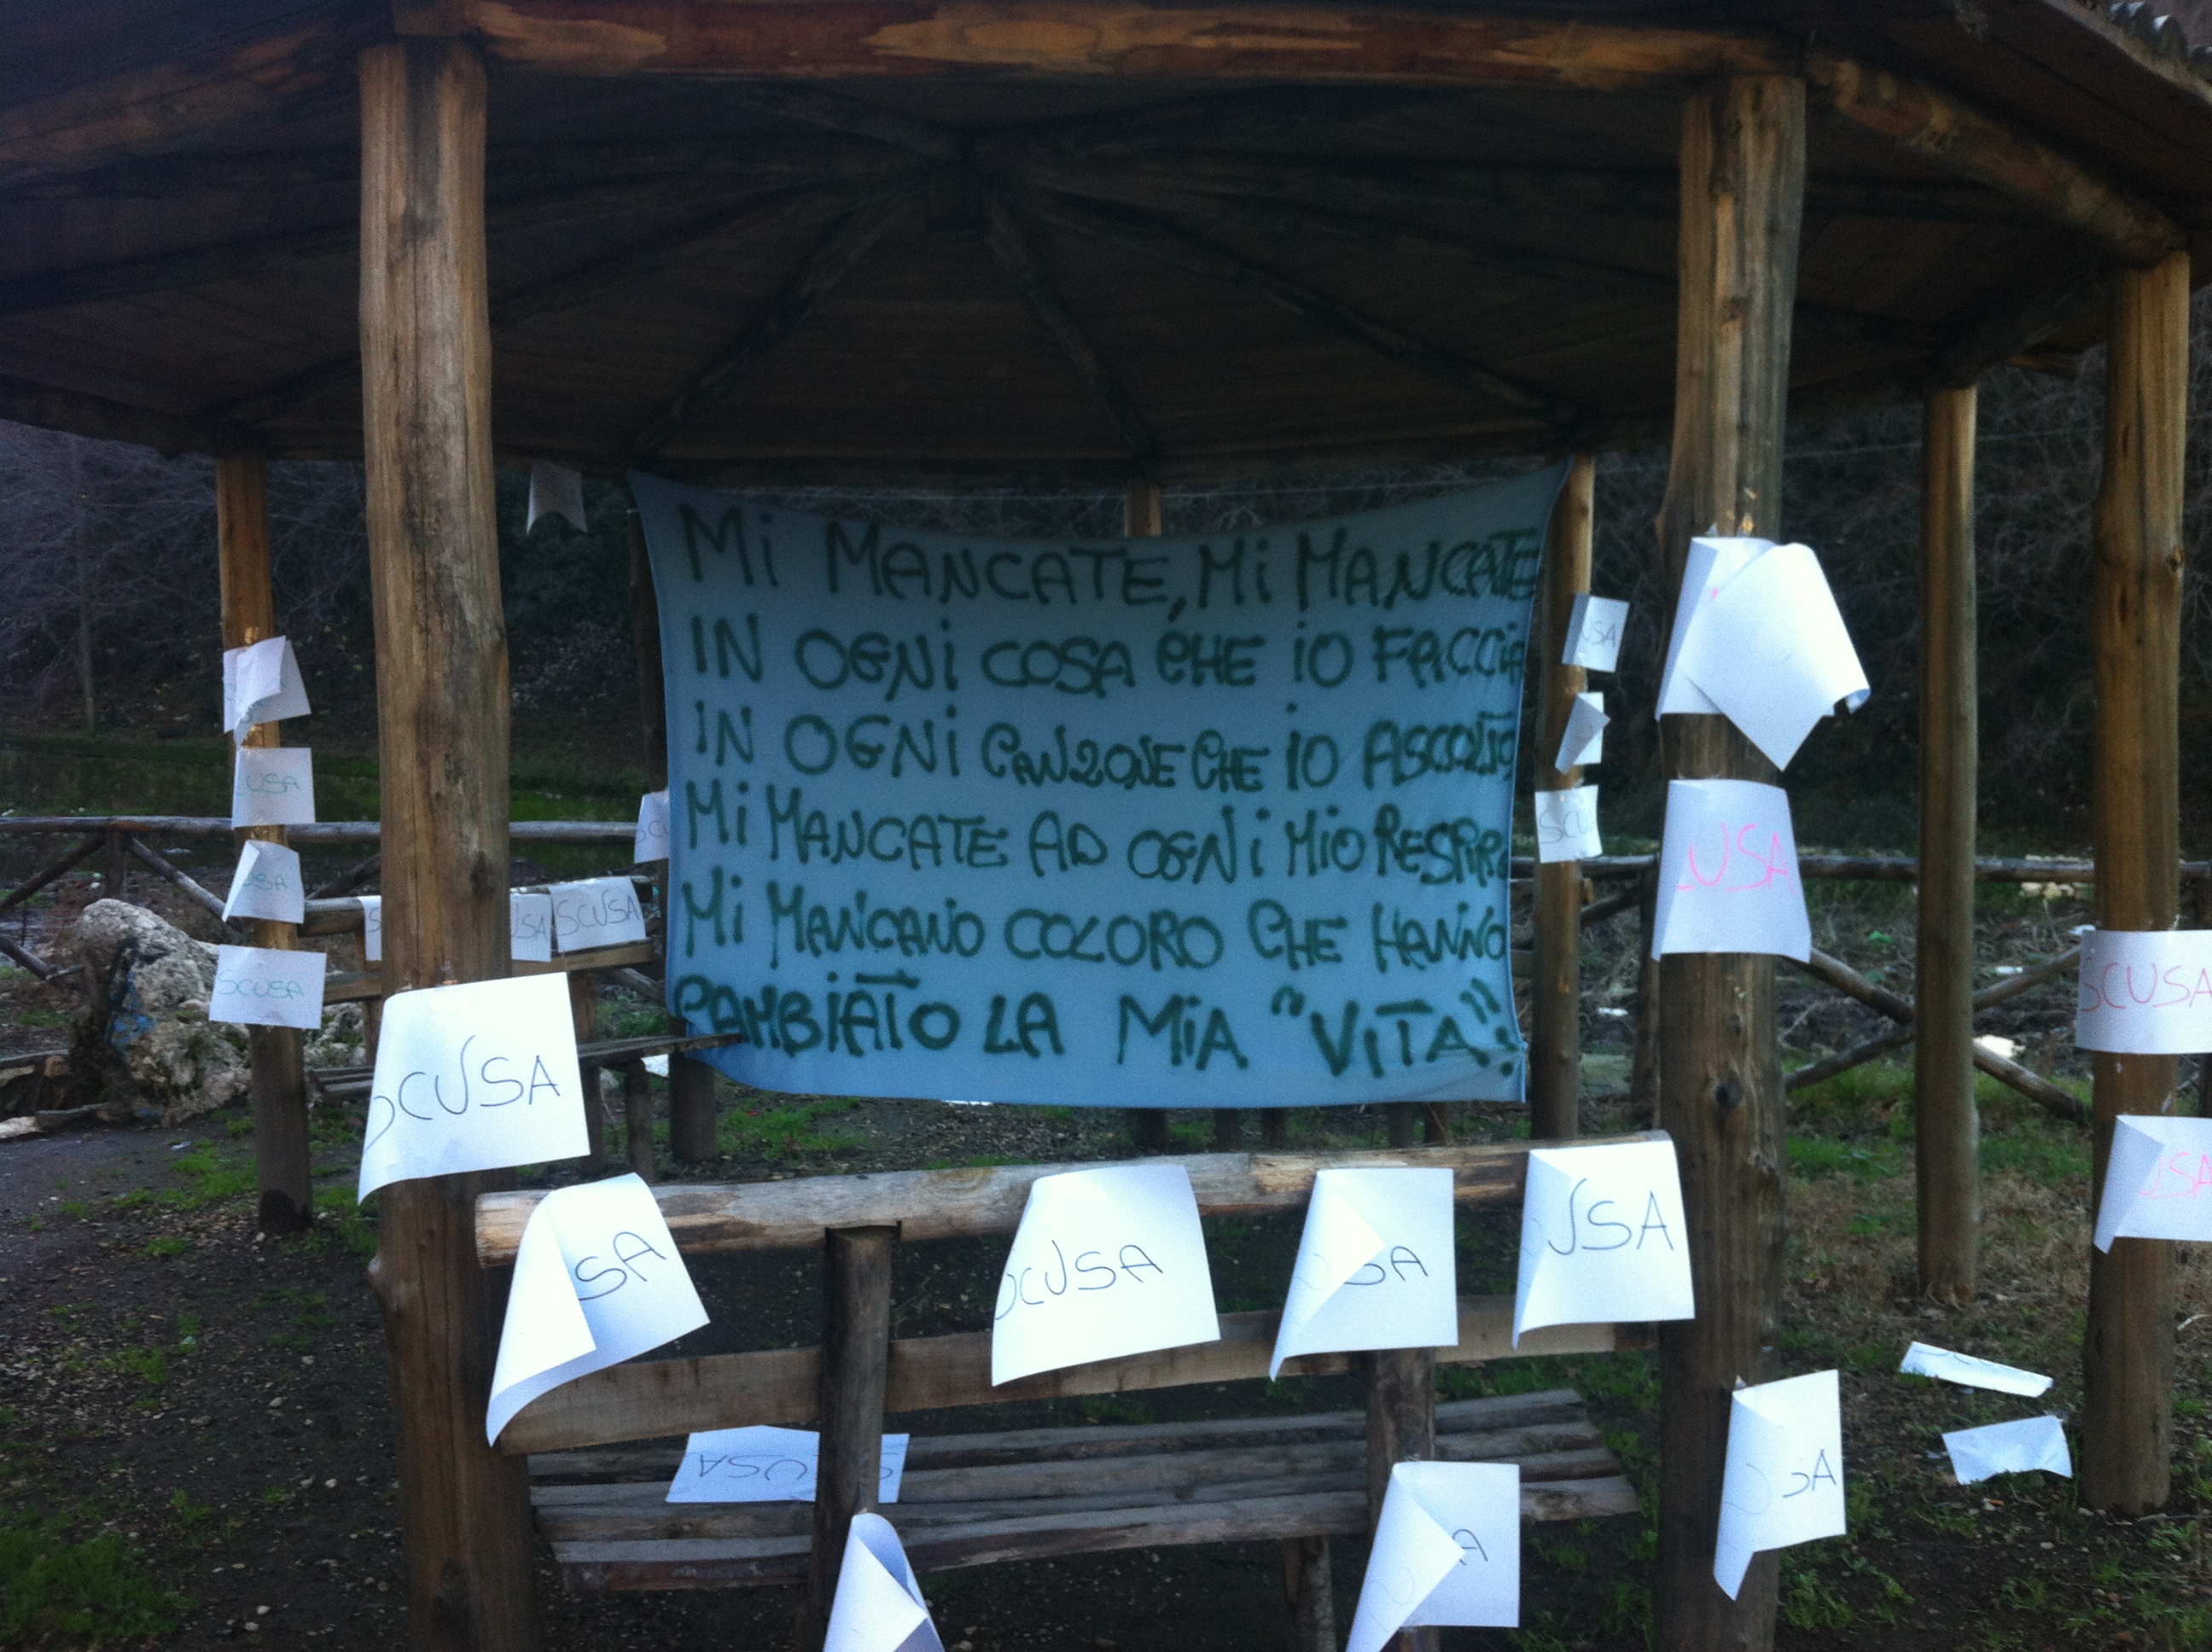 Mi MANCATE, Mi MANCATE
IN OGNi COSA CHE iO FACCIA
IN OGNi CANZONE CHE iO ASCOLTO
Mi MANCATE AD OGNi Mio RESPIRO
Mi MANCANO COLORO CHE HANNO
CAMBIATO LA MiA "ViTA":
USA
SCU
CUSA
USA
USA
SCUSA
USA
SCUSA
SCUSA
SCUSA
USA
SCUSA
CUSA
SA
USA
SA
SCUSA
A
A